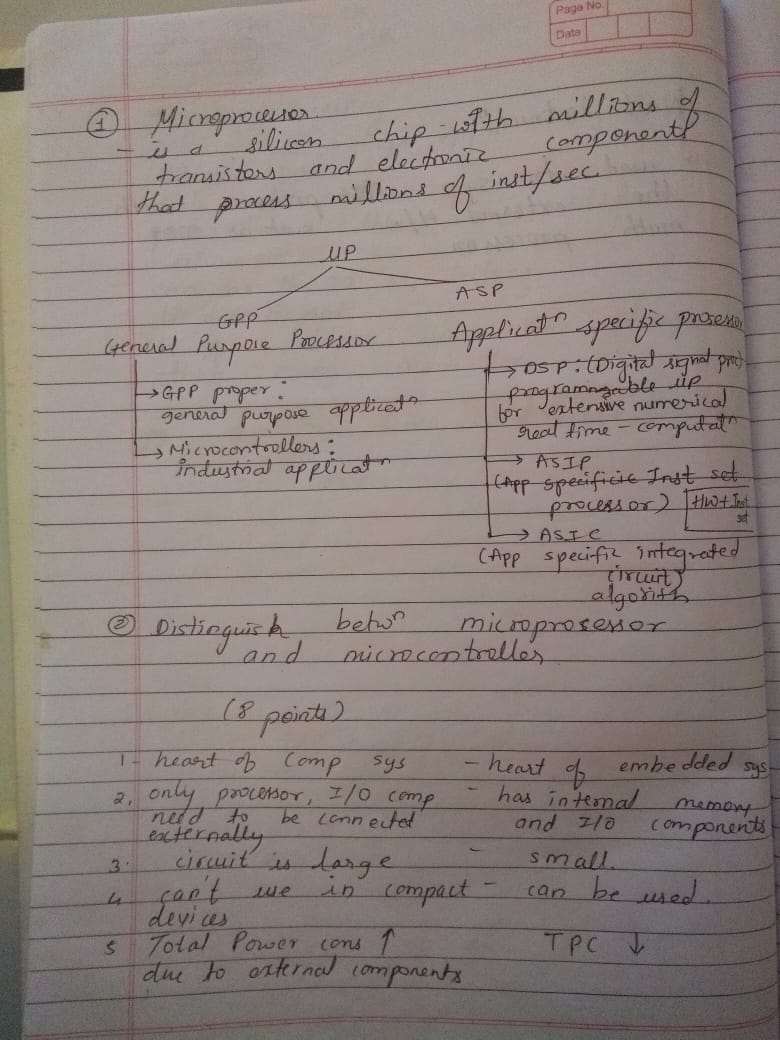 Page No.
Date
① Microprocessor
- is a silicon chip with millions of
transistors and electronic components
that process millions of inst/sec.
UP
GPP
ASP
General Purpose Processor
→ GPP proper:
general purpose applicatn
→ Microcontrollers:
industrial applicatn
Applicatn specific prosessor
→ DSP: (Digital signal proc)
programmable UP
for extensive numerical
real time - computatn
→ ASIP
(App specificic Inst set
processor)
HW+Inst
set
→ ASIC
(App specific integrated
circuit)
algorith
② Distinguish betwn microprosessor
and microcontroller
(8 points)
1- heart of comp sys - heart of embedded sys
2, only processor, I/O comp - has internal memory
need to be connected and I/O components
externally
3. circuit is large - small.
4 can't use in compact - can be used.
devices
5 Total Power cons ↑ TPC ↓
due to external components